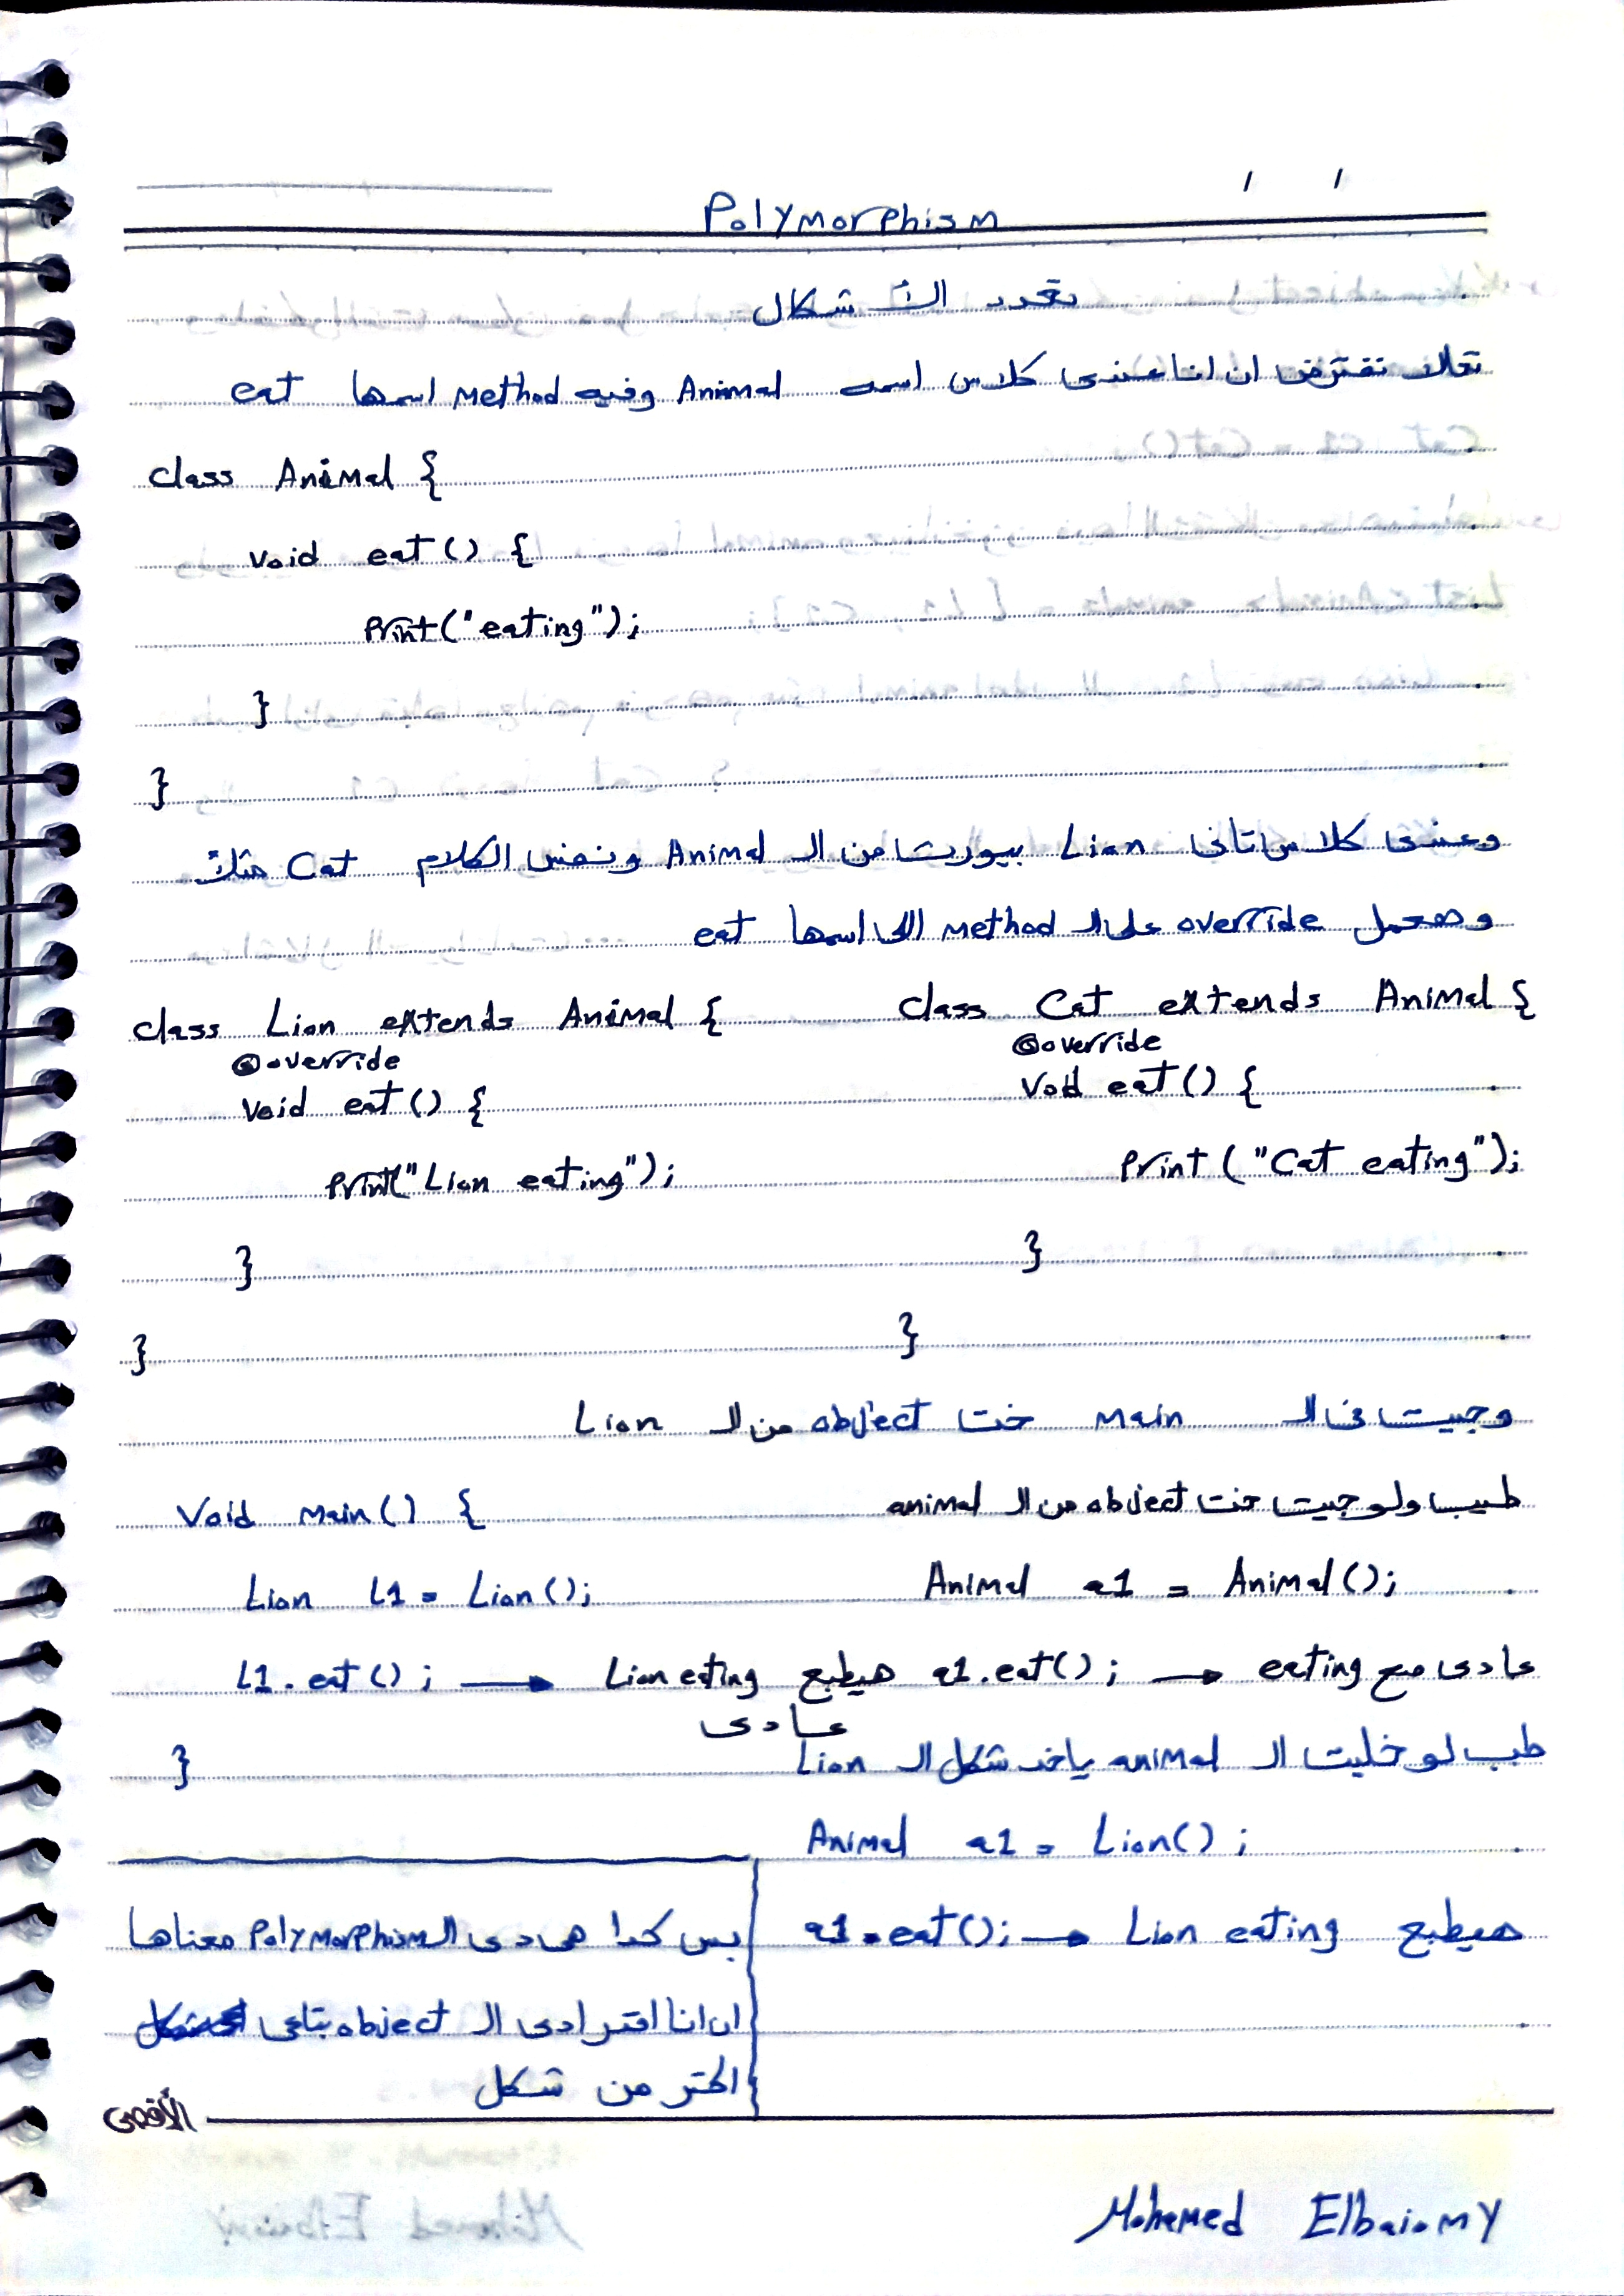 Polymorphism
تعدد الأشكال
تعالا نفترض ان انا عندى كلاس اسمه Animal وفيه method اسمها eat
class Animal {
void eat() {
print("eating");
}
}
وعندى كلاس تانى Lion بيورث من الـ Animal ونفس الكلام Cat مثلاً
وهعمل override على الـ method اللى اسمها eat
class Lion extends Animal {
@override
void eat() {
print("Lion eating");
}
}
class Cat extends Animal {
@override
void eat() {
print("Cat eating");
}
}
وجيت فى الـ main خدت object من الـ Lion
void main() {
Lion L1 = Lion();
L1.eat(); → Lion eating هيطبع
عادى
}
طيب ولو جيت خدت object من الـ animal
Animal a1 = Animal();
a1.eat(); → eating عادى
طب لو خليت الـ animal ياخد شكل الـ Lion
Animal a1 = Lion();
a1.eat(); → Lion eating هيطبع
بس كدا هى دى الـ Polymorphism معناها
ان انا اقدر ادى الـ object بتاعى
اكتر من شكل
الأقصى
Mohamed Elbaiomy